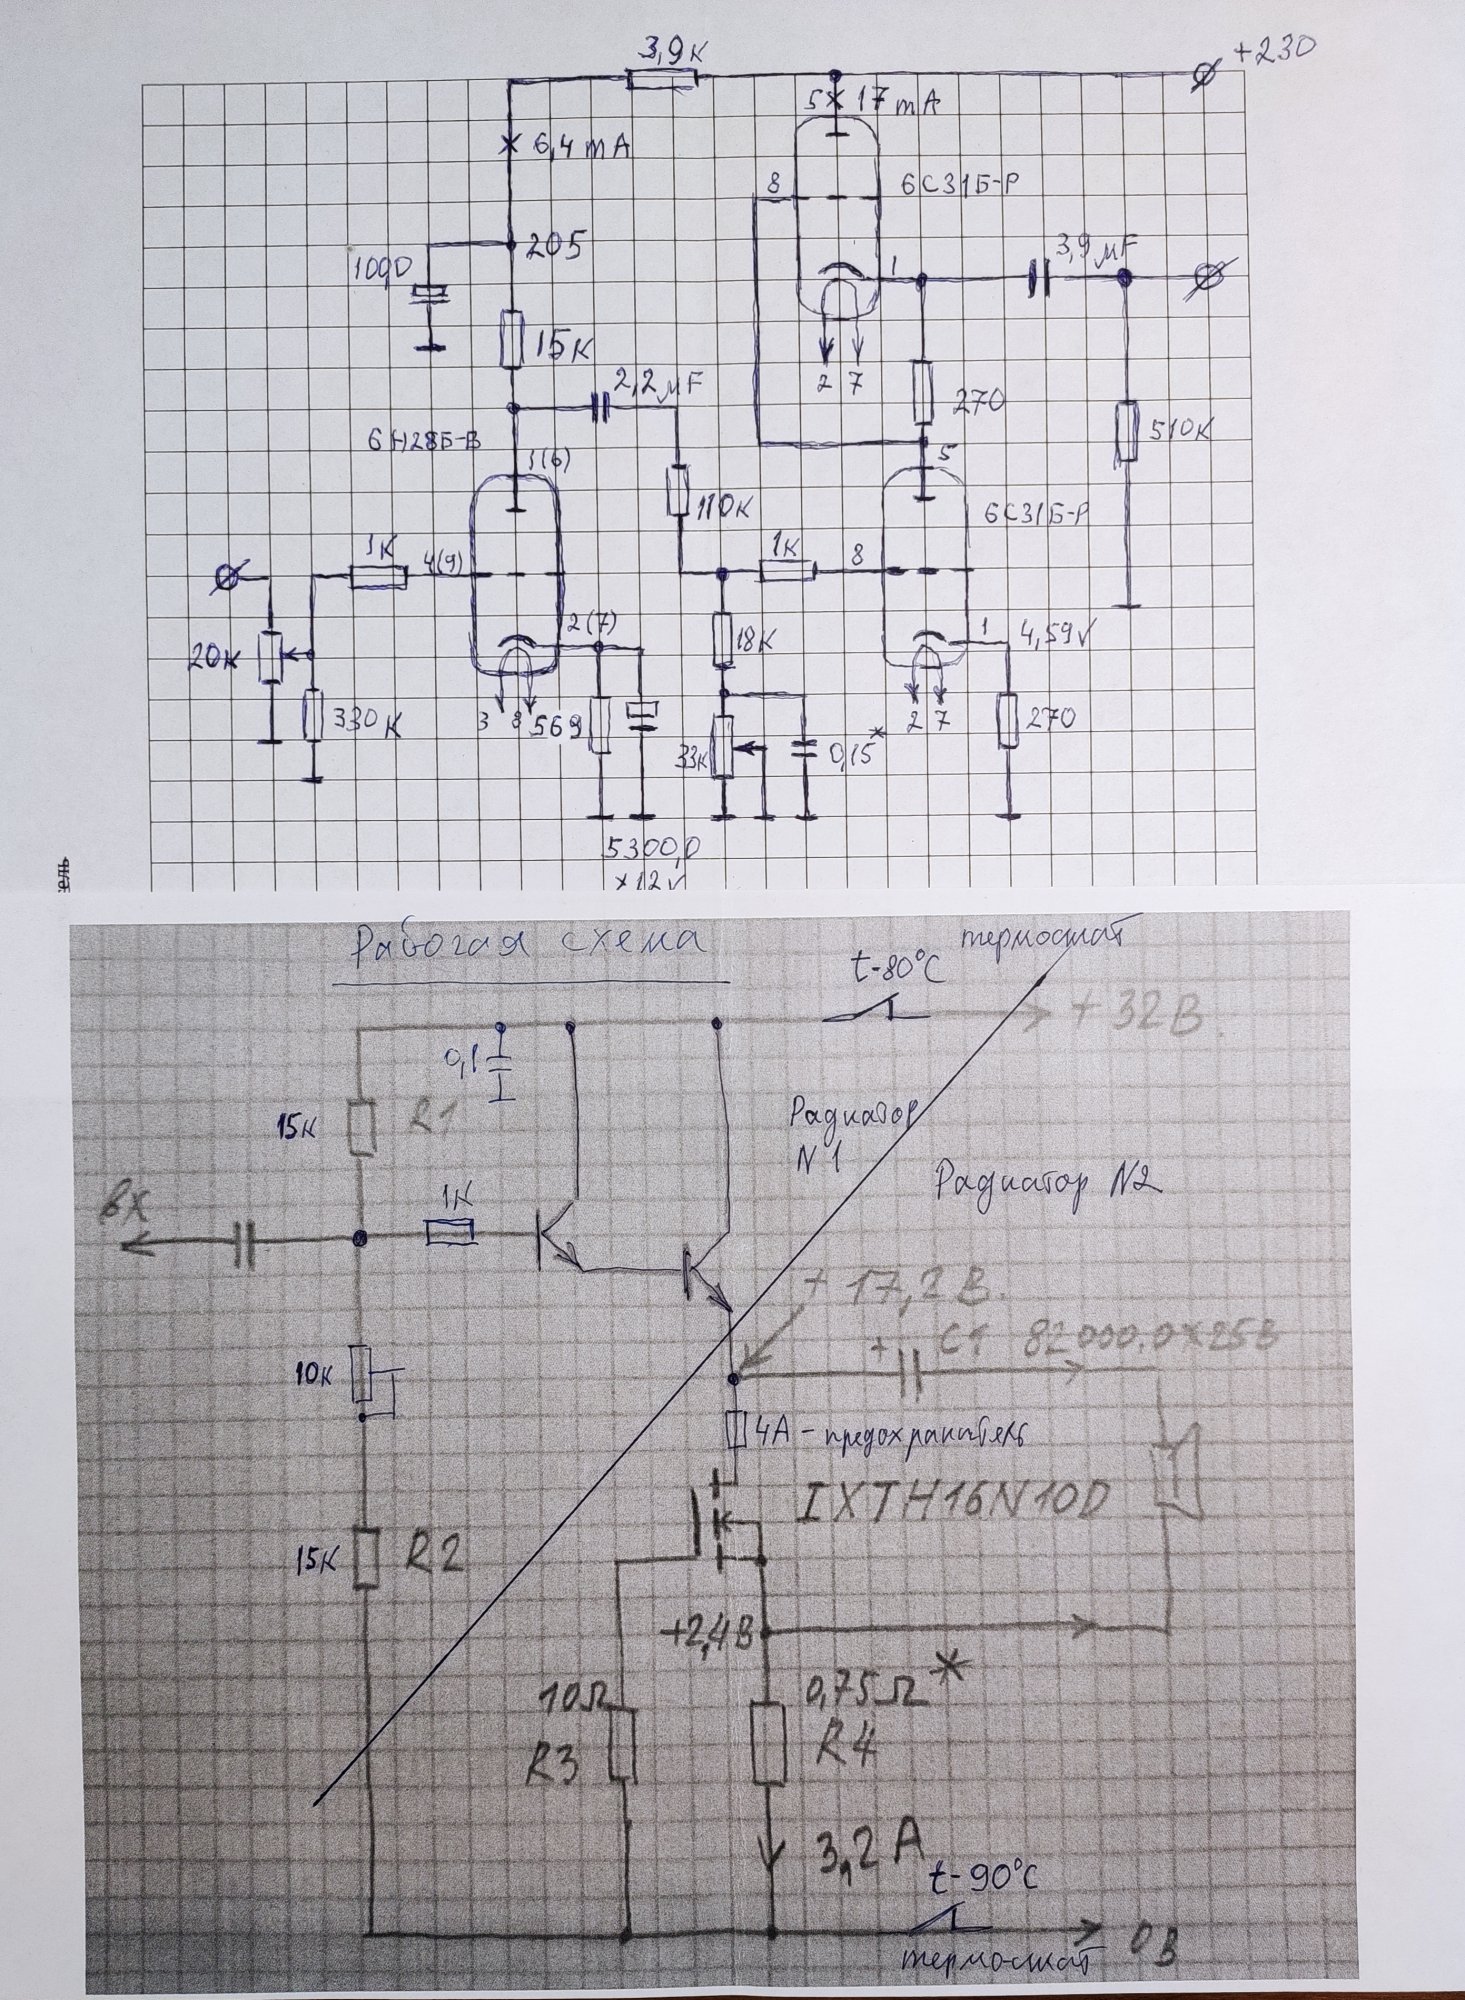 3,9к
+230
5
17 mA
6,4 mA
8
6С31Б-Р
205
1
3,9 μF
1000
15к
2,2 μF
2 7
270
510к
6Н28Б-В
1(6)
5
110к
6С31Б-Р
1к
4(9)
1к
8
2(7)
1
4,59v
20к
18к
330к
3 8
569
33к
0,15*
2 7
270
5300,0
×12v
Рабочая схема
термостат
t-80°C
+32В
0,1
15к
R1
Радиатор
N1
Радиатор N2
вх
1к
+17,2В.
+ C1 82000,0×25В
10к
4А - предохранитель
IXTH16N10D
15к
R2
+2,4В
10Ω
R3
0,75Ω*
R4
3,2А
t-90°C
термостат
0В